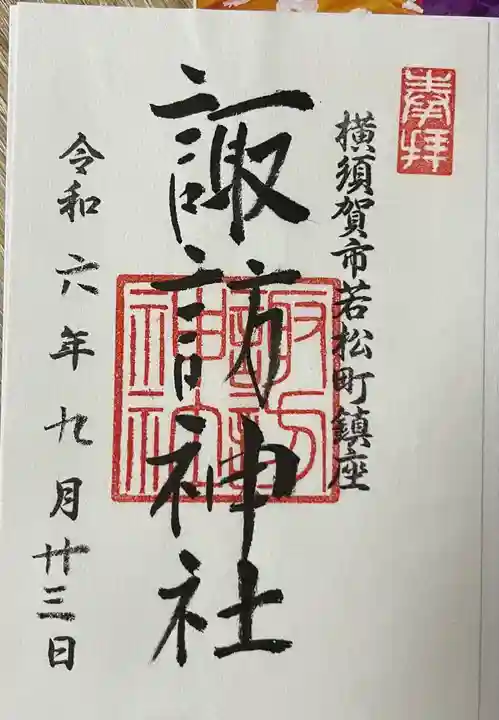 奉拝
横須賀市若松町鎮座
諏訪神社
諏訪
神社
令和六年九月廿三日